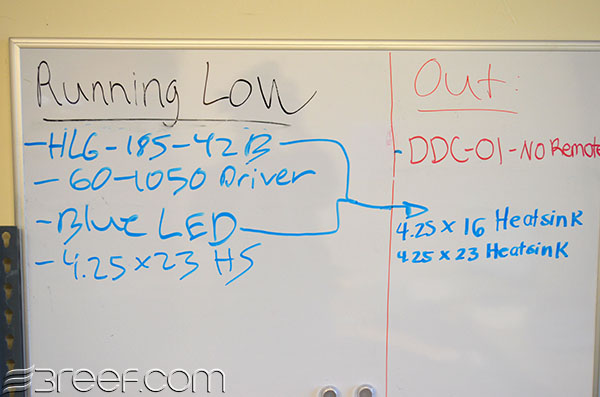 Running Low
-HLG-185-42B
-60-1050 Driver
-Blue LED
-4.25 x 23 HS
Out:
-DDC-01-No Remote
4.25 x 16 Heatsink
4.25 x 23 Heatsink
3reef.com